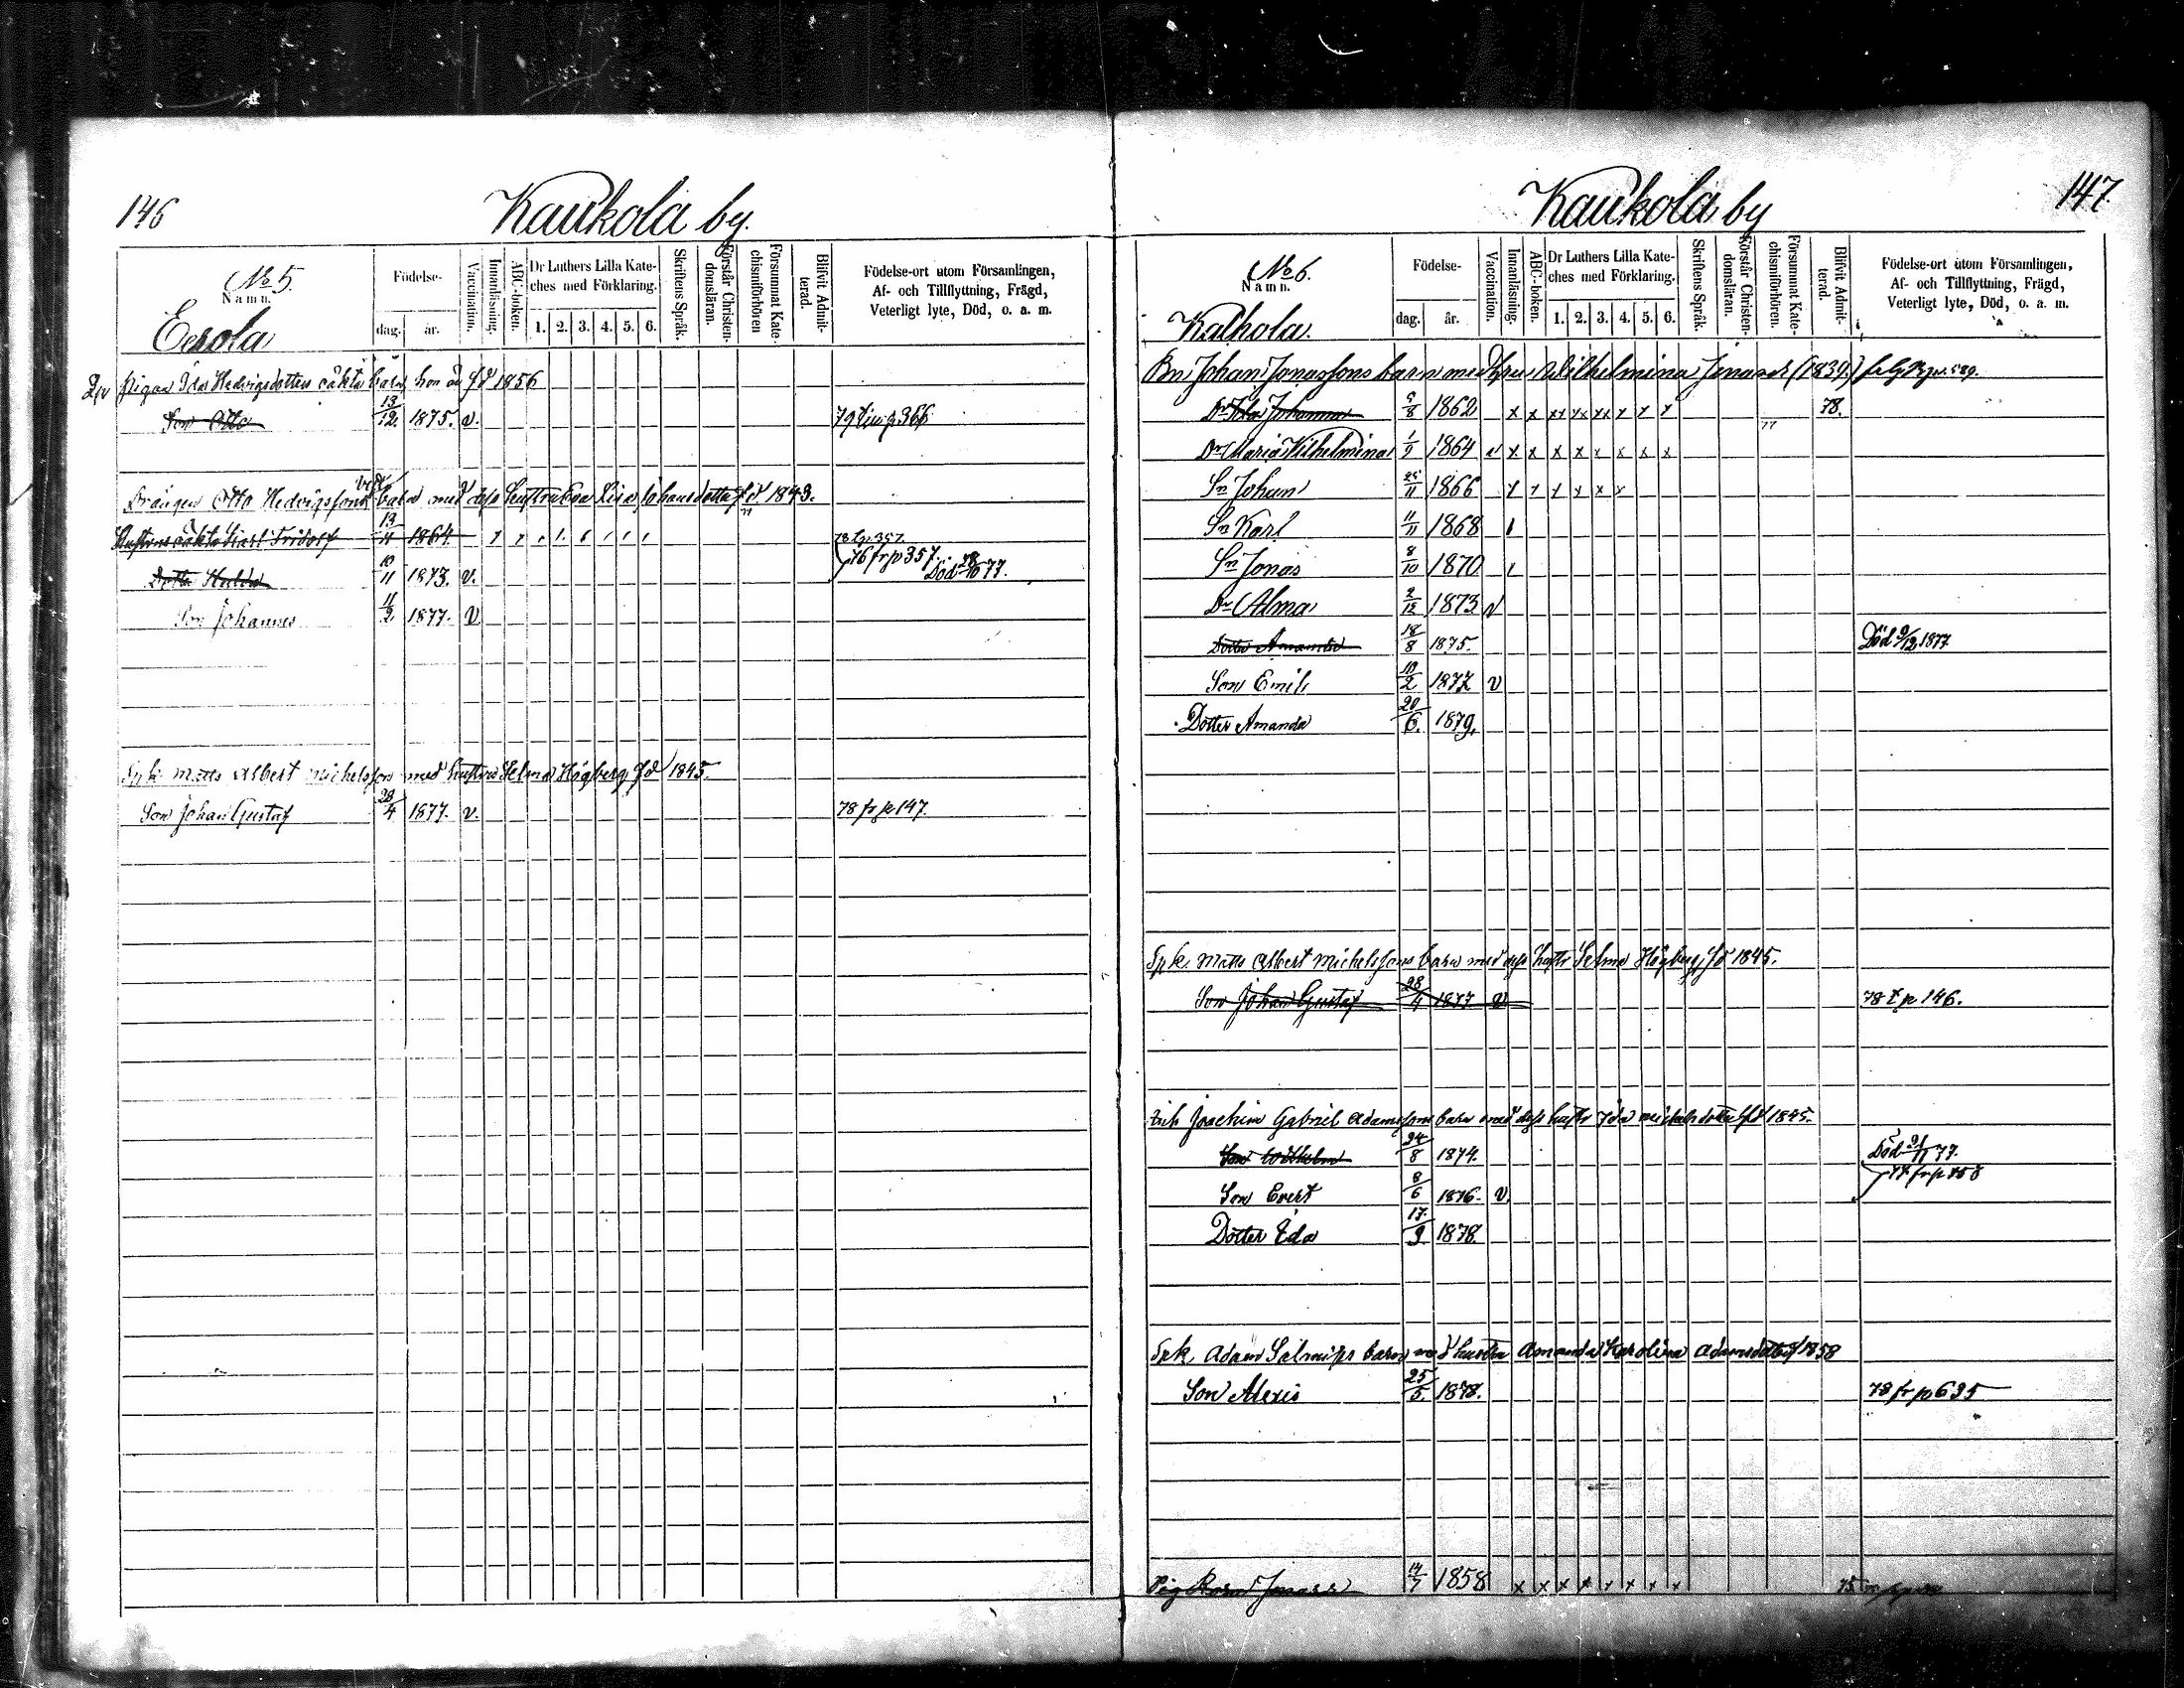 146
Kaukola by.
No 5.
Namn.
Eerola
Födelse-
dag. år.
Vaccination.
Innanläsning.
ABC-boken.
Dr Luthers Lilla Kate-
ches med Förklaring.
1. 2. 3. 4. 5. 6.
Skriftens Språk.
Förstår Christen-
domsläran.
Försummat Kate-
chismiförhören
Blifvit Admit-
terad.
Födelse-ort utom Församlingen,
Af- och Tillflyttning, Frägd,
Veterligt lyte, Död, o. a. m.
Pigan Ida Hedvigsdotters oäkta barn hon är fd 1856
Son Otto 13/12 1875. v.
Drängen Otto Hedvigssons barn med dess hustru Eva Lisa Johansdotter fd 1843.
Hustruns oäkta Karl Fridolf 13/11 1864 78 t. p. 357.
Dotter Hulda 10/11 1873. v. 76 fr p 357. Död 28/10 77.
Son Johannes 11/2 1877. v
Spk. Matts Albert Michelsson med hustru Selma Högberg fd 1845.
Son Johan Gustaf 28/4 1877. v. 78 fr p 147.
147.
Kaukola by
No 6.
Namn.
Kalhola.
Födelse-
dag. år.
Vaccination.
Innanläsning.
ABC-boken.
Dr Luthers Lilla Kate-
ches med Förklaring.
1. 2. 3. 4. 5. 6.
Skriftens Språk.
Förstår Christen-
domsläran.
Försummat Kate-
chismiförhören.
Blifvit Admit-
terad.
Födelse-ort utom Församlingen,
Af- och Tillflyttning, Frägd,
Veterligt lyte, Död, o. a. m.
Bn Johan Jonassons barn med hru Wilhelmina Jonasdr (1839)
Dr Ida Johanna 5/8 1862 x x xx xx xx x x x 78.
Dr Maria Vilhelmina 1864 v x x x x x x x x
Sn Johan 25/11 1866 x x x x x x
Sn Karl 11/11 1868
Sn Jonas 8/10 1870
Dr Alma 2/12 1873 v
Dotter Amanda 18/8 1875. Död 9/12 1877
Son Emil 10/2 1877 v
Dotter Amanda 20/6. 1879.
Spk. Matts Albert Michelssons barn med dess hustr Selma Högberg fd 1845.
Son Johan Gustaf 28/4 1877 v 78 t p 146.
Joachim Gabriel Adamssons barn med dess hustr Ida Michelsdotter fd 1845.
Son Wilhelm 24/8 1874.
Son Evert 8/6 1876. v.
Dotter Ida 17/9 1878.
Spk. Adam Salmis barn med hustru Amanda Karolina Adamsdotter f 1858
Son Alexis 25/5. 1878. 78 fr p 695
14/7 1858 x x x x x x x x